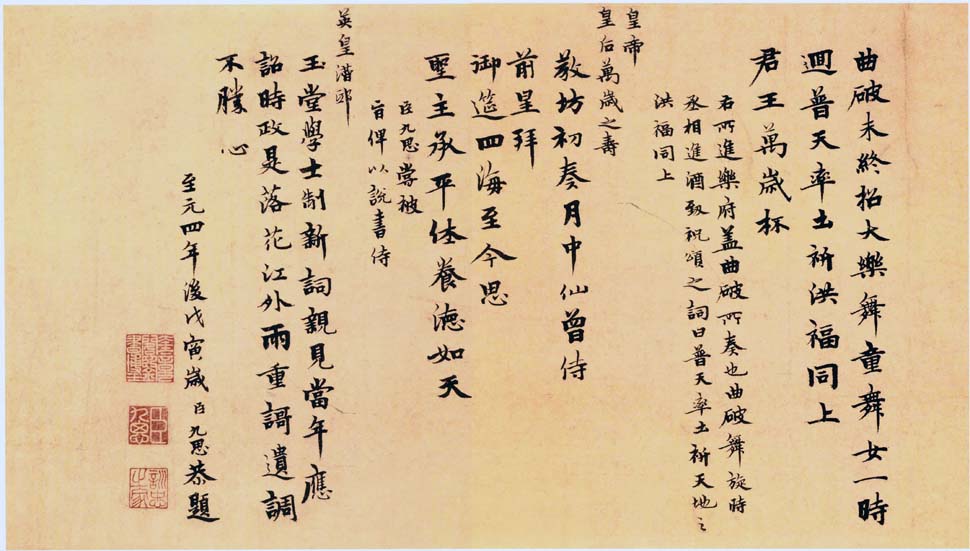 曲破未終招大樂舞童舞女一時
迴普天率土祈洪福同上
君王萬歲杯
右所進樂府盖曲破所奏也曲破舞旋時
丞相進酒致祝頌之詞曰普天率土祈天地之
洪福同上
皇帝
皇后萬歲之壽
教坊初奏月中仙曾侍
前星拜
御筵四海至今思
聖主承平休養德如天
臣九思嘗被
旨俾以說書侍
英皇潛邸
玉堂學士制新詞親見當年應
詔時政是落花江外雨重謌遺調
不勝心
至元四年後戊寅歲臣九思恭題
訓忠之家